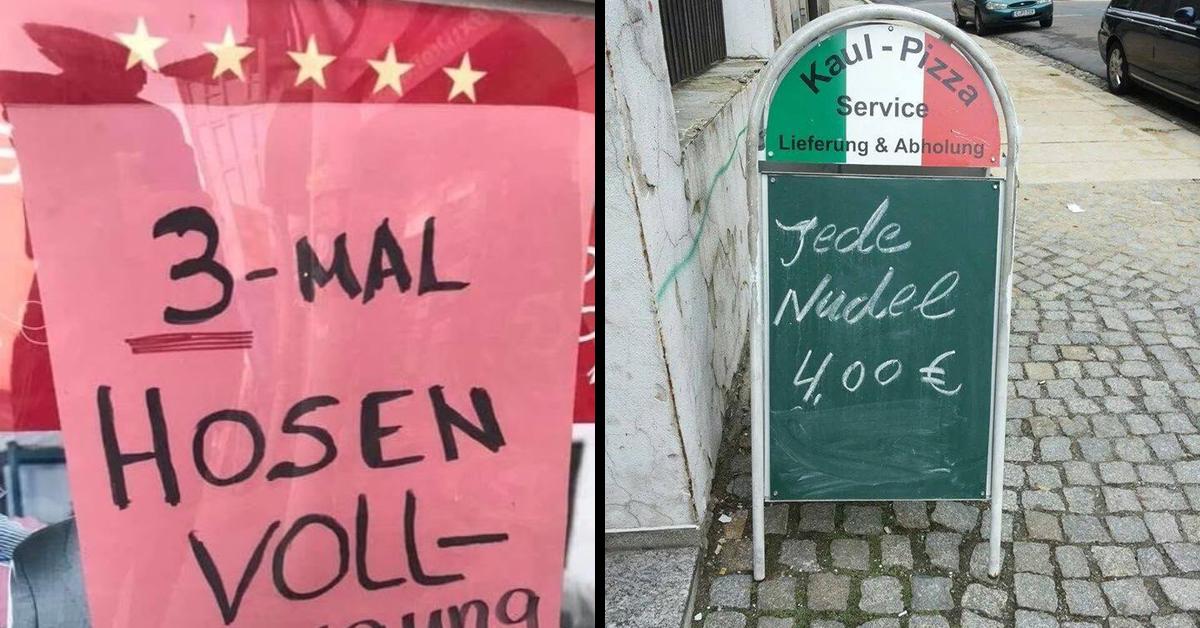 3-MAL
HOSEN
VOLL-
Kaul-Pizza
Service
Lieferung & Abholung
Jede
Nudel
4,00 €